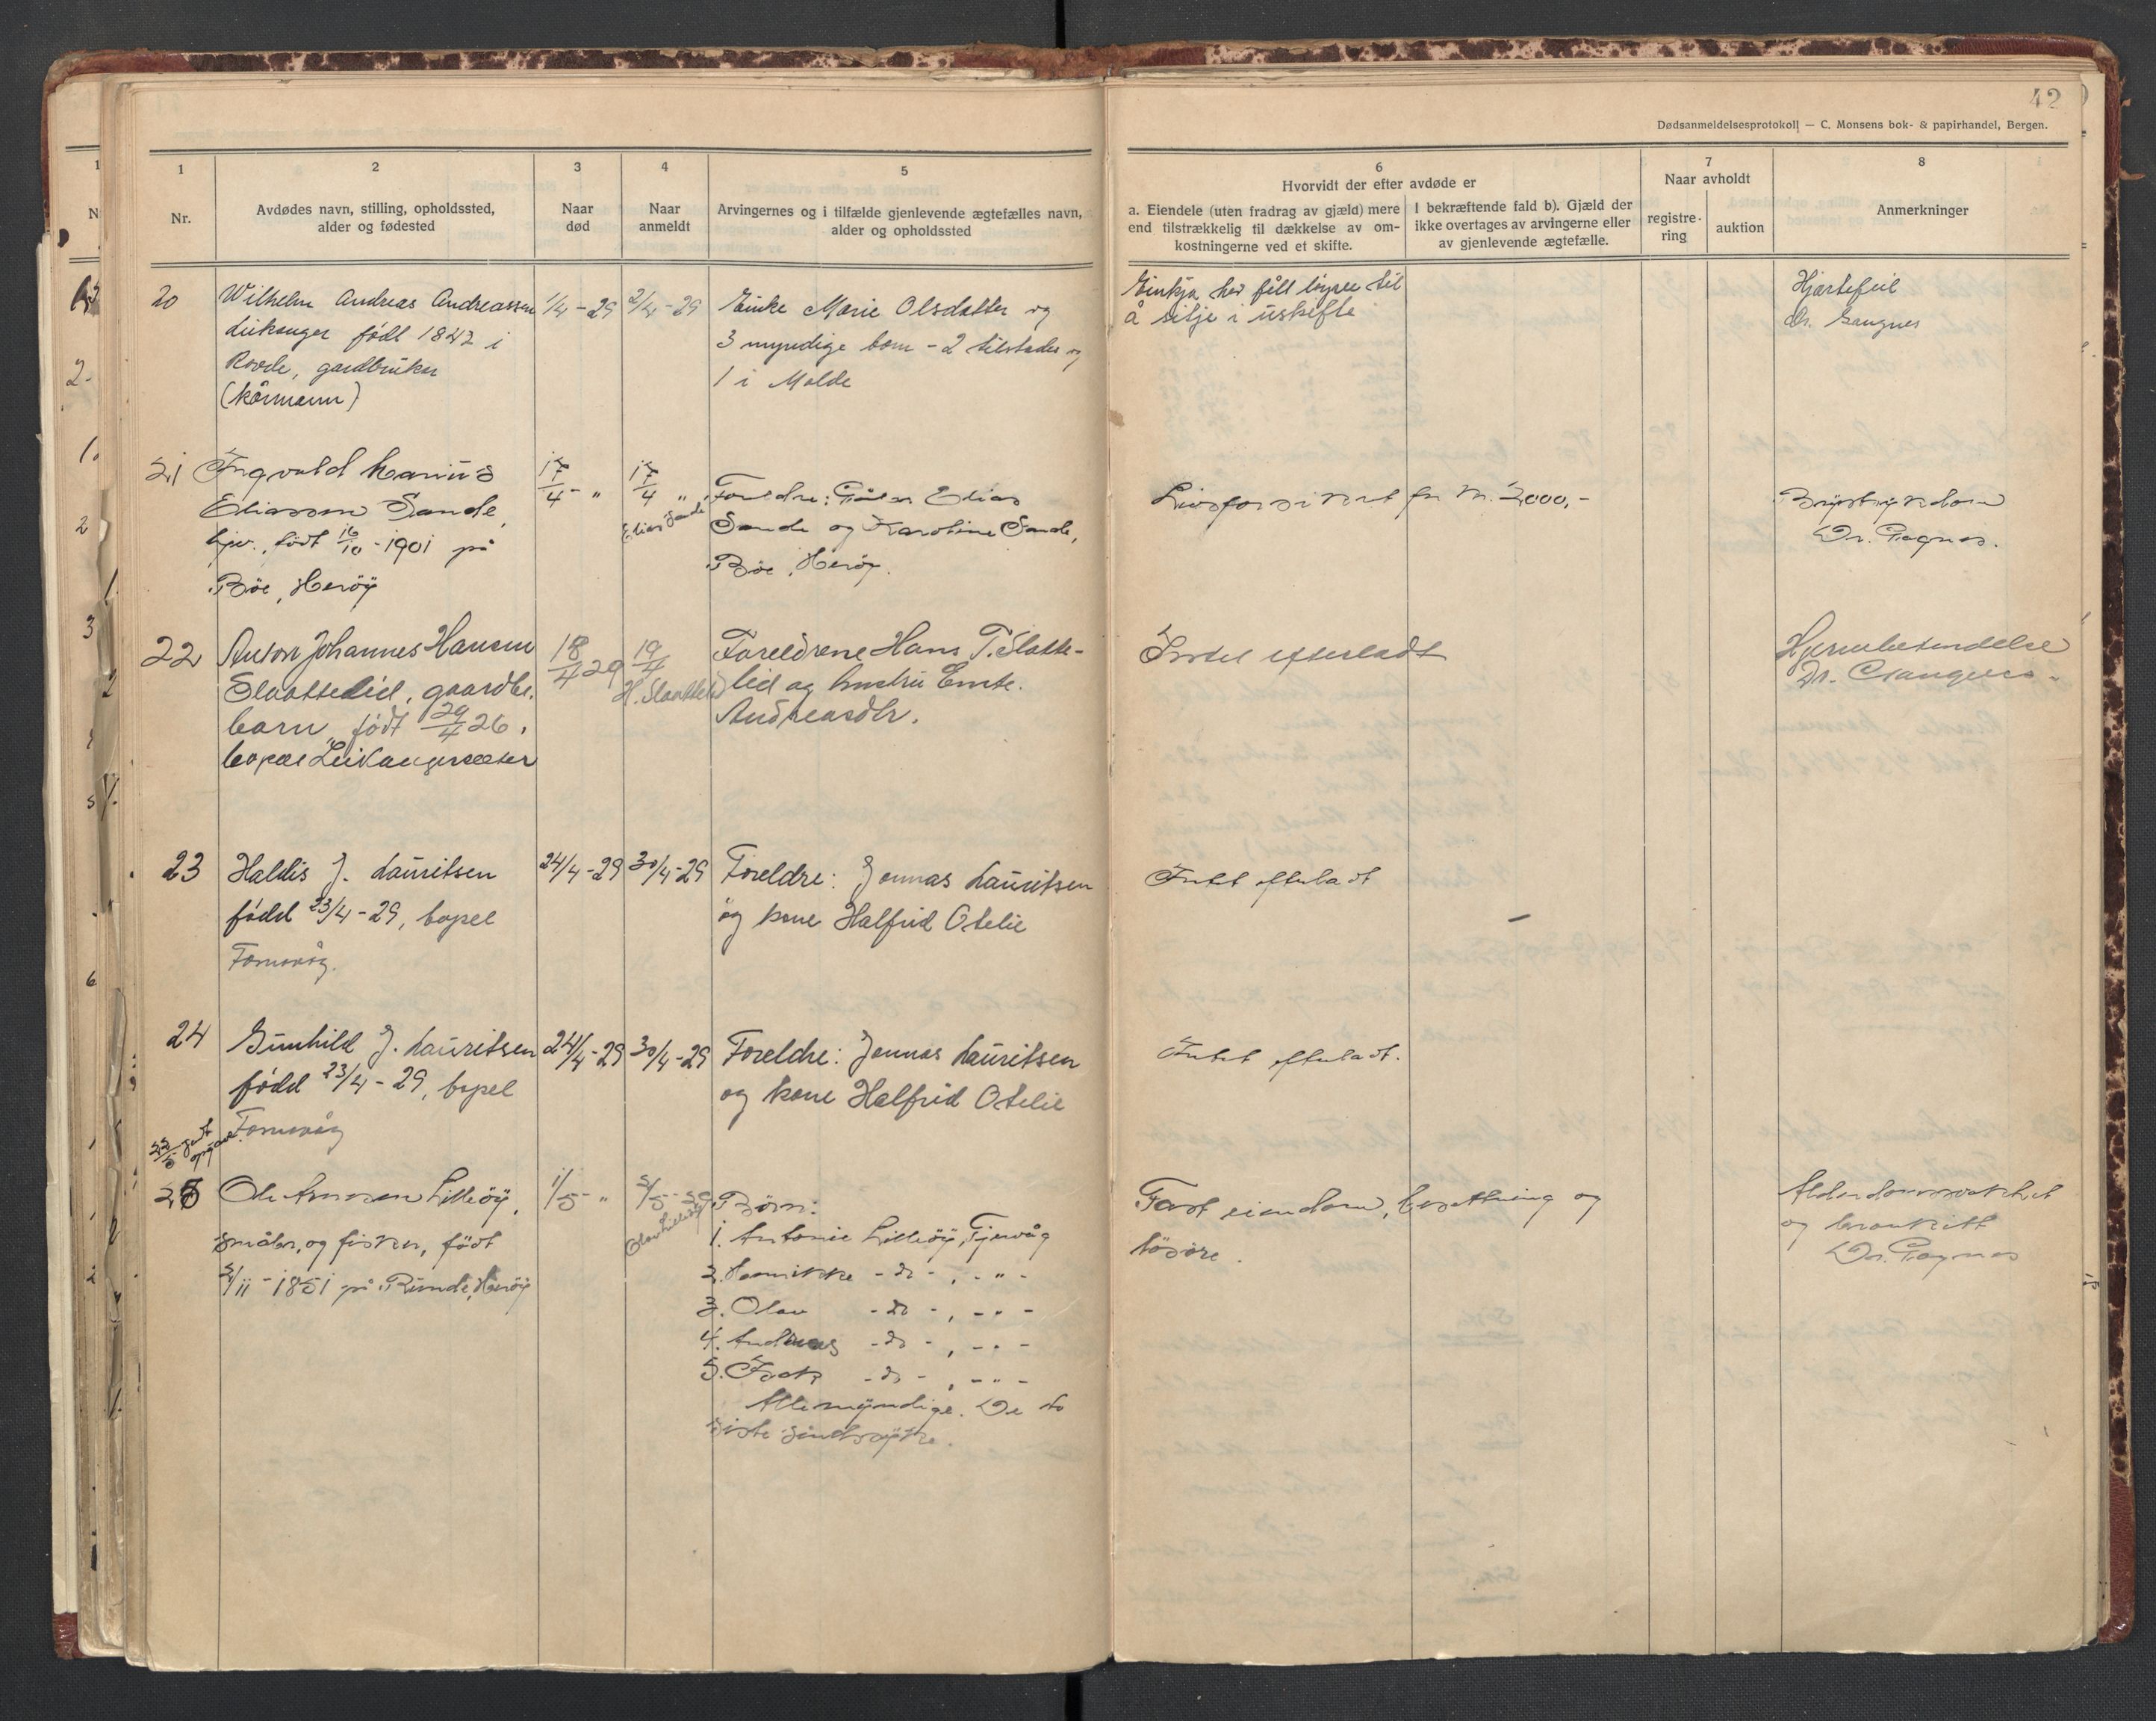 42
Dødsanmeldelsesprotokoll — C. Monsens bok- & papirhandel, Bergen.
1
2
3
4
5
6
7
8
Nr.
Avdødes navn, stilling, opholdssted,
alder og fødested
Naar
død
Naar
anmeldt
Arvingernes og i tilfælde gjenlevende ægtefælles navn,
alder og opholdssted
Hvorvidt der efter avdøde er
a. Eiendele (uten fradrag av gjæld) mere
end tilstrækkelig til dækkelse av om-
kostningerne ved et skifte.
I bekræftende fald b). Gjæld der
ikke overtages av arvingerne eller
av gjenlevende ægtefælle.
Naar avholdt
registre-
ring
auktion
Anmerkninger
20
Wilhelm Andreas Andreassen
Leikanger født 1842 i
Rovde, gardbruker
(kårmann)
1/4-29
2/4-29
Enke Marie Olsdatter og
3 myndige born - 2 tilstades og
1 i Molde
Einkja hev fått løyve til
å sitje i uskifte
Hjartefeil
dr. Gangnes
21
Ingvald Marius
Eliassen Sande,
født 16/10-1901 på
Böe, Heröy
17/4- "
17/4 "
Elias Sande
Foreldre: Elias
Sande og Karoline Sande,
Böe, Heröy.
Livsforsikret for kr. 2000,-
Brystsykdom
Dr.
22
Anton Johannes Hansen
Slaattelid, gaardbr.
barn, født 29/4 26.
bopæl Leikangersæter
18/4 29
19/4
H. Slaattelid
Foreldrene Hans T. Slatte-
lid og hustru
Andreasdtr.
Intet efterladt
Hjernebetendelse
Dr. Gangnes.
23
Haldis J. Lauritsen
född 23/4-29, bopel
24/4-29
30/4-29
Foreldre: Jonnas Lauritsen
og kone Halfrid Otelie
Intet efterladt
-
24
Gunhild J. Lauritsen
född 23/4-29, bopel
24/4-29
30/4-29
Foreldre: Jonnas Lauritsen
og kone Halfrid Otelie
Intet efterladt.
25
Ole Lilleöy,
småbr. og fisker, født
/11-1851 på Runde, Heröy
1/5- "
/5-29
Olav Lilleöy
Börn:
1. Antonie Lilleöy, Tjervåg
2. Henrikke - do - , - " -
3. Olav - do - , - " -
4. Andreas - do - , - " -
5. - do - , - " -
Alle myndige. De to
siste sindssyke.
Fast eiendom, besetning og
lösöre.
Alderdomssvakhet
og bronkitt
Dr.